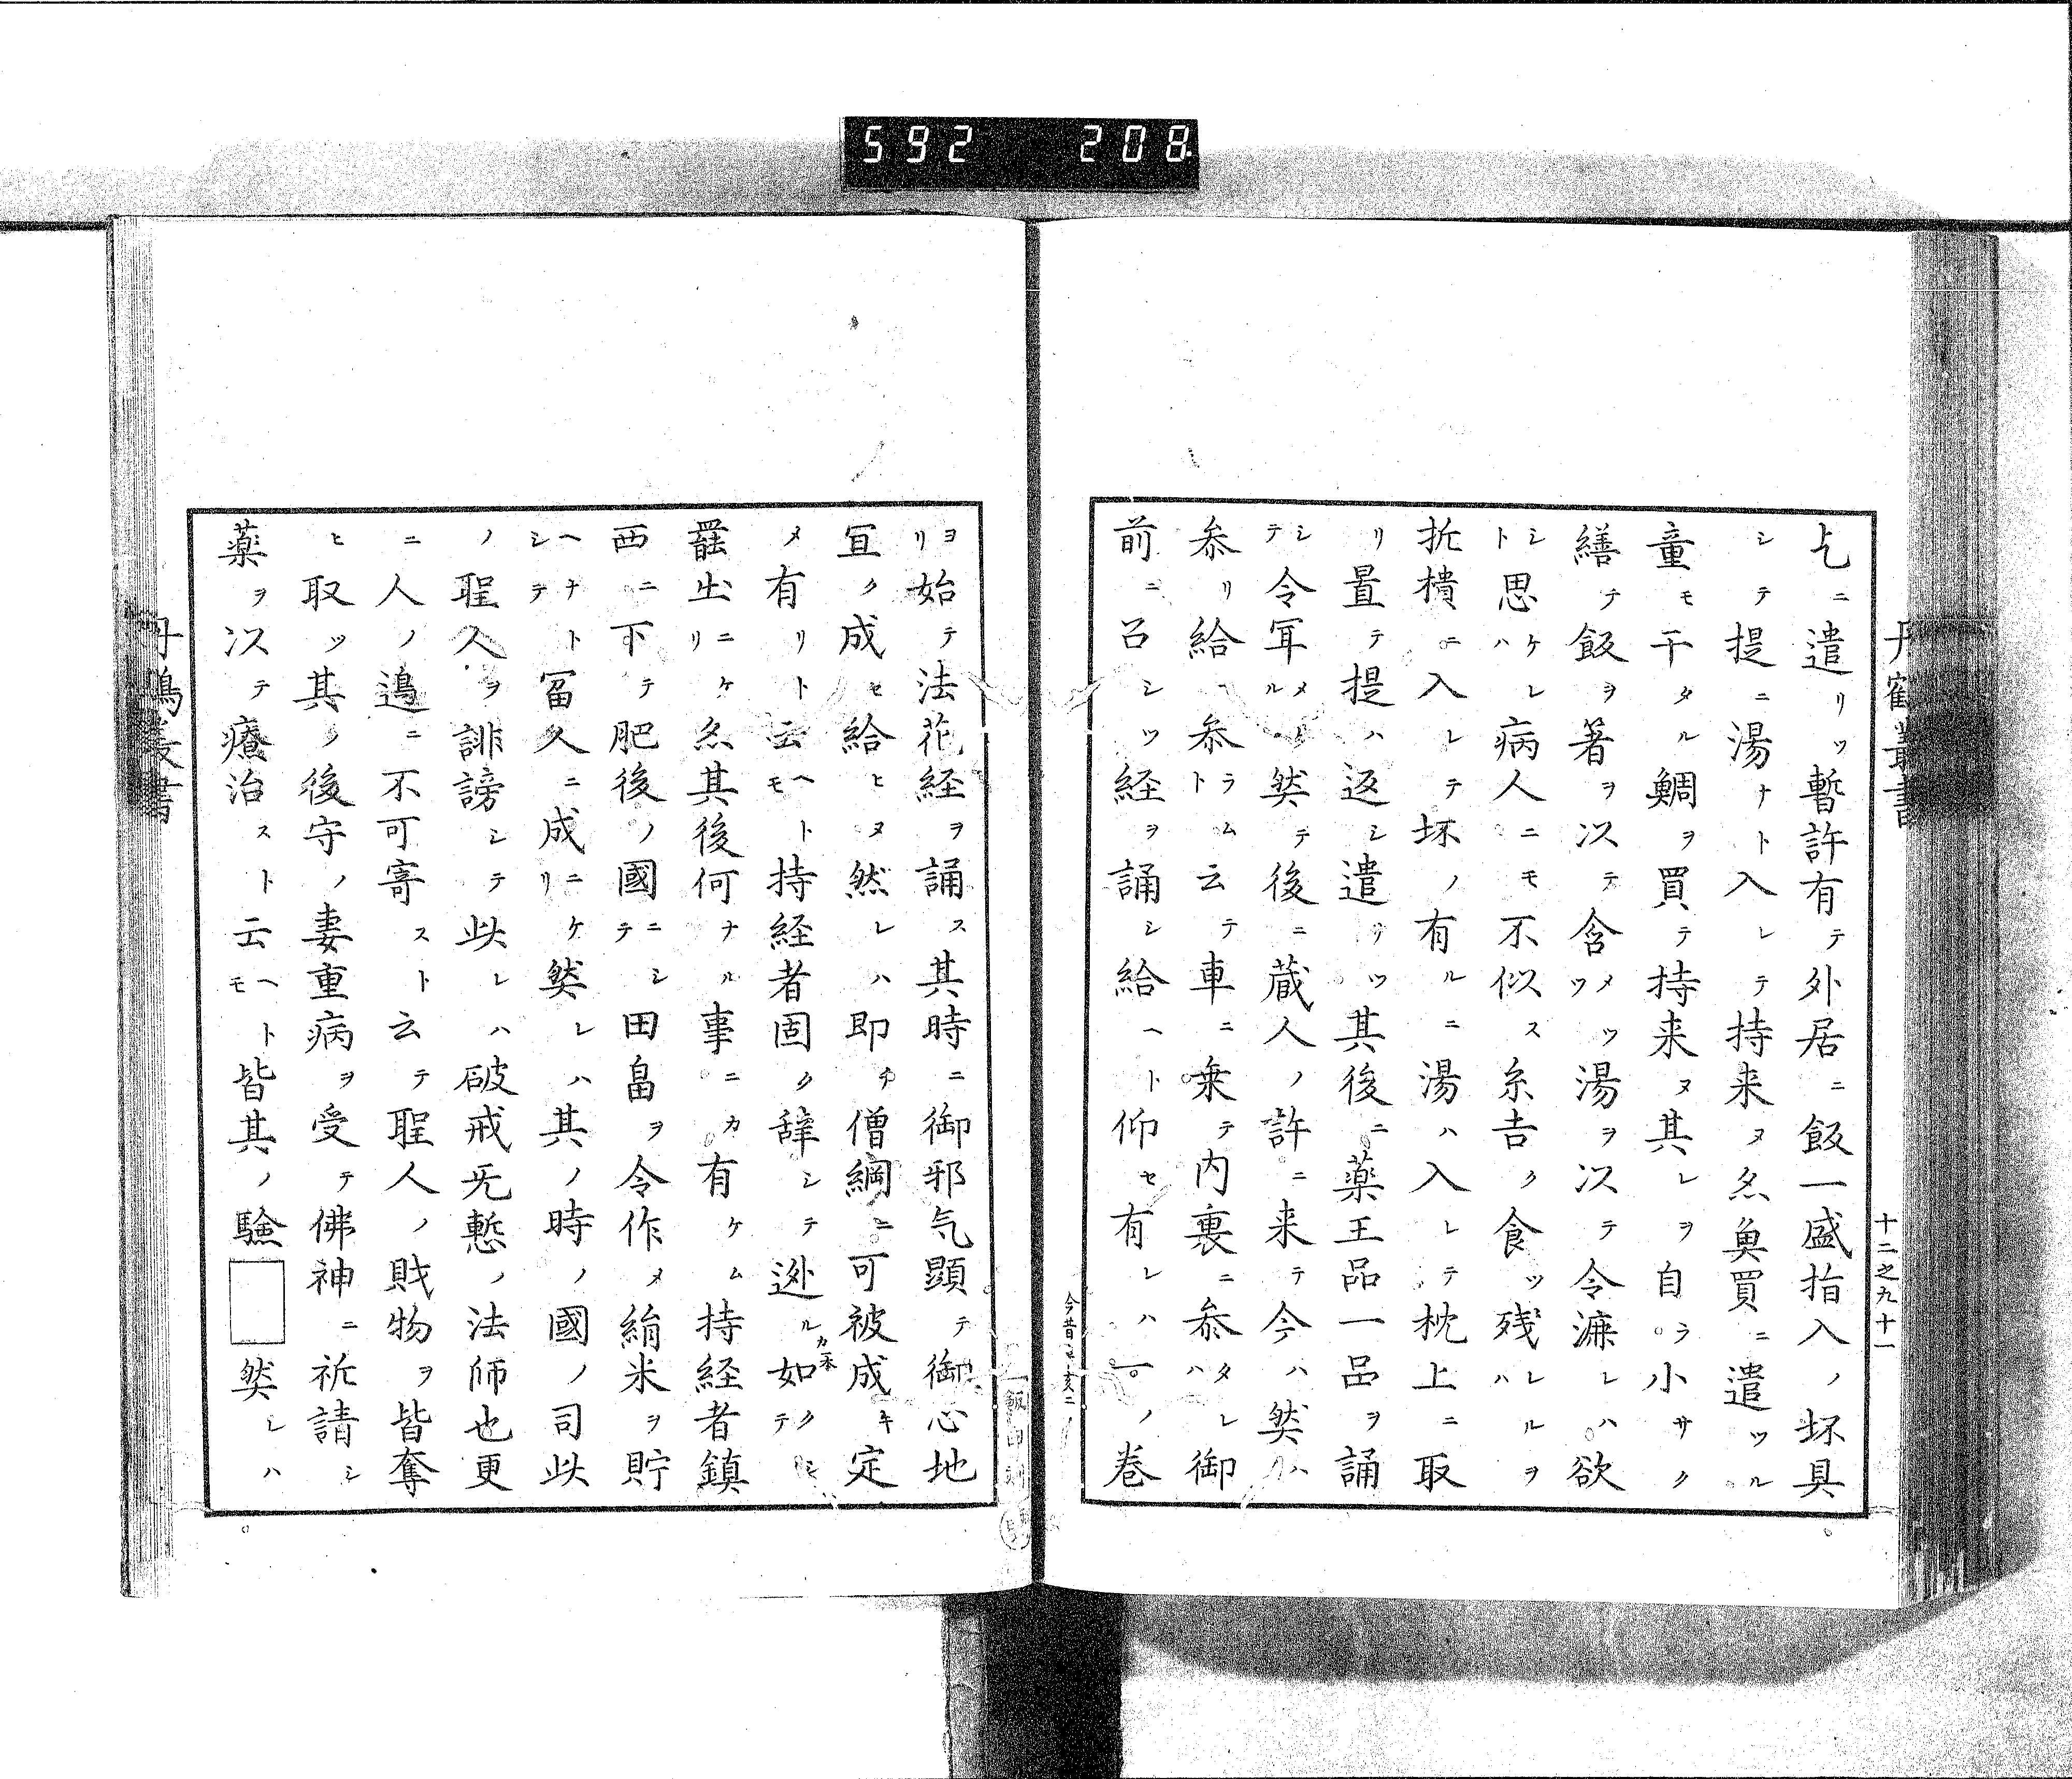 592 208
丹鶴叢書
十二之九十一
乞ニ遣リツ暫許有テ外居ニ飯一盛指入ノ坏具
シテ提ニ湯ナト入レテ持来ヌ亦魚買ニ遣ツル
童モ干タル鯛ヲ買テ持来ヌ其レヲ自ラ小サク
繕テ飯ヲ箸ヲ以テ含メツツ湯ヲ以テ令漉レハ欲
シト思ケレハ病人ニモ不似ス糸吉ク食ツ残レルヲハ
折樻ニ入レテ坏ノ有ルニ湯ハ入レテ枕上ニ取
リ置テ提ハ返シ遣リツ其後ニ薬王品一品ヲ誦
シテ令聞メケル然テ後ニ蔵人ノ許ニ来テ今ハ然ハ
参リ給ヘ参ラムト云テ車ニ乗テ内裏ニ参タレハ御
前ニ召シツ経ヲ誦シ給ヘト仰セ有レハ一ノ巻
ヲリ始テ法花経ヲ誦ス其時ニ御邪気顕テ御心地
冝ク成セ給ヒヌ然レハ即チ僧綱ニ可被成キ定
メ有リト云ヘトモ持経者固ク辞シテ逊ルカ本如クシテ
罷出ニケリ亦其後何ナル事ニカ有ケム持経者鎮
西ニ下テ肥後ノ國ニシテ田畠ヲ令作メ絹米ヲ貯
ヘナトシテ冨人ニ成ニケリ然レハ其ノ時ノ國ノ司此
ノ聖人ヲ誹謗シテ此レハ破戒无慙ノ法師也更
ニ人ノ邊ニ不可寄スト云テ聖人ノ財物ヲ皆奪
ヒ取ツ其ノ後守ノ妻重病ヲ受テ佛神ニ祈請シ
薬ヲ以テ療治スト云ヘトモ皆其ノ驗□然レハ